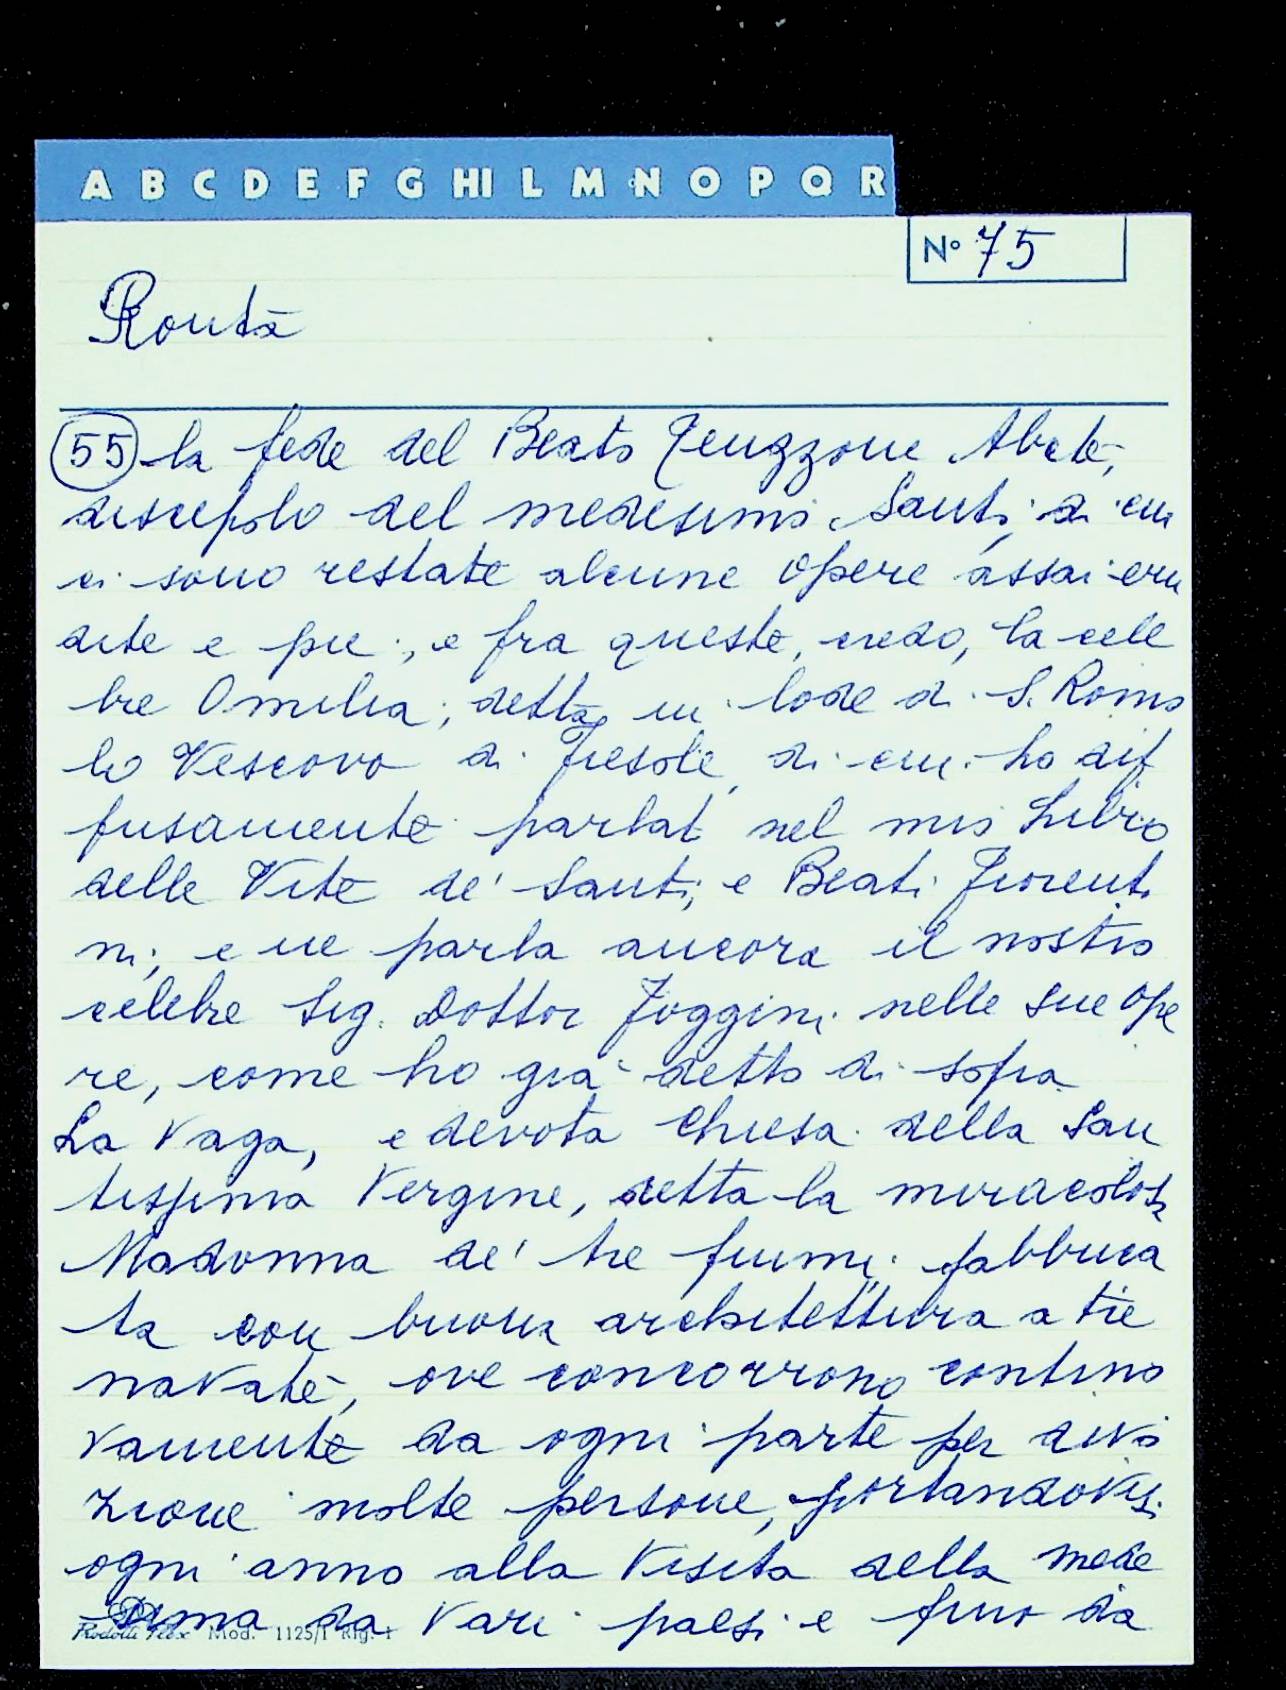 A B C D E F G HI L M N O P Q R
Nº 75
Rontà
(55) la fede del Beato Teuzzone Abate,
discepolo del medesimo Santo, di cui
ci sono restate alcune opere assai eru
dite e pie; e fra queste, credo, la cele
bre Omelia; detta in lode di S. Romo
lo Vescovo di Fiesole, di cui ho dif
fusamente parlat nel mio Libro
delle Vite de' Santi, e Beati Fiorenti
ni; e ne parla ancora il nostro
celebre Sig. Dottor Foggini nelle sue Ope
re, come ho già detto di sopra
La vaga, e devota Chiesa della San
tissima Vergine, detta la miracolosa
Madonna de' tre fiumi fabbrica
ta con buona architettura a tre
navate, ove concorrono contino
vamente da ogni parte per divo
zione molte persone, portandovisi
ogni anno alla Visita della mede
sima da vari paesi e fino da
Mod. 1125/1 Rig. 1